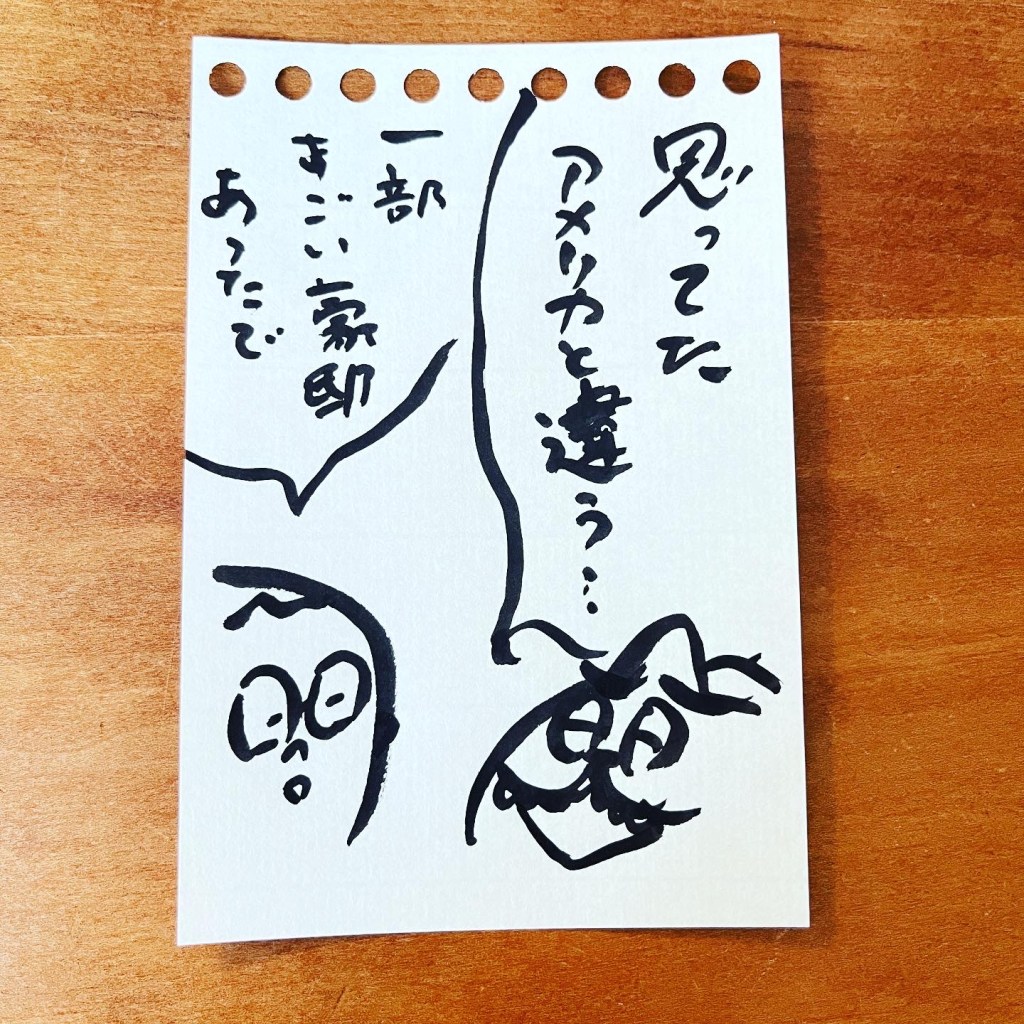 思ってた
アメリカと違う…
一部
すごい豪邸
あったで